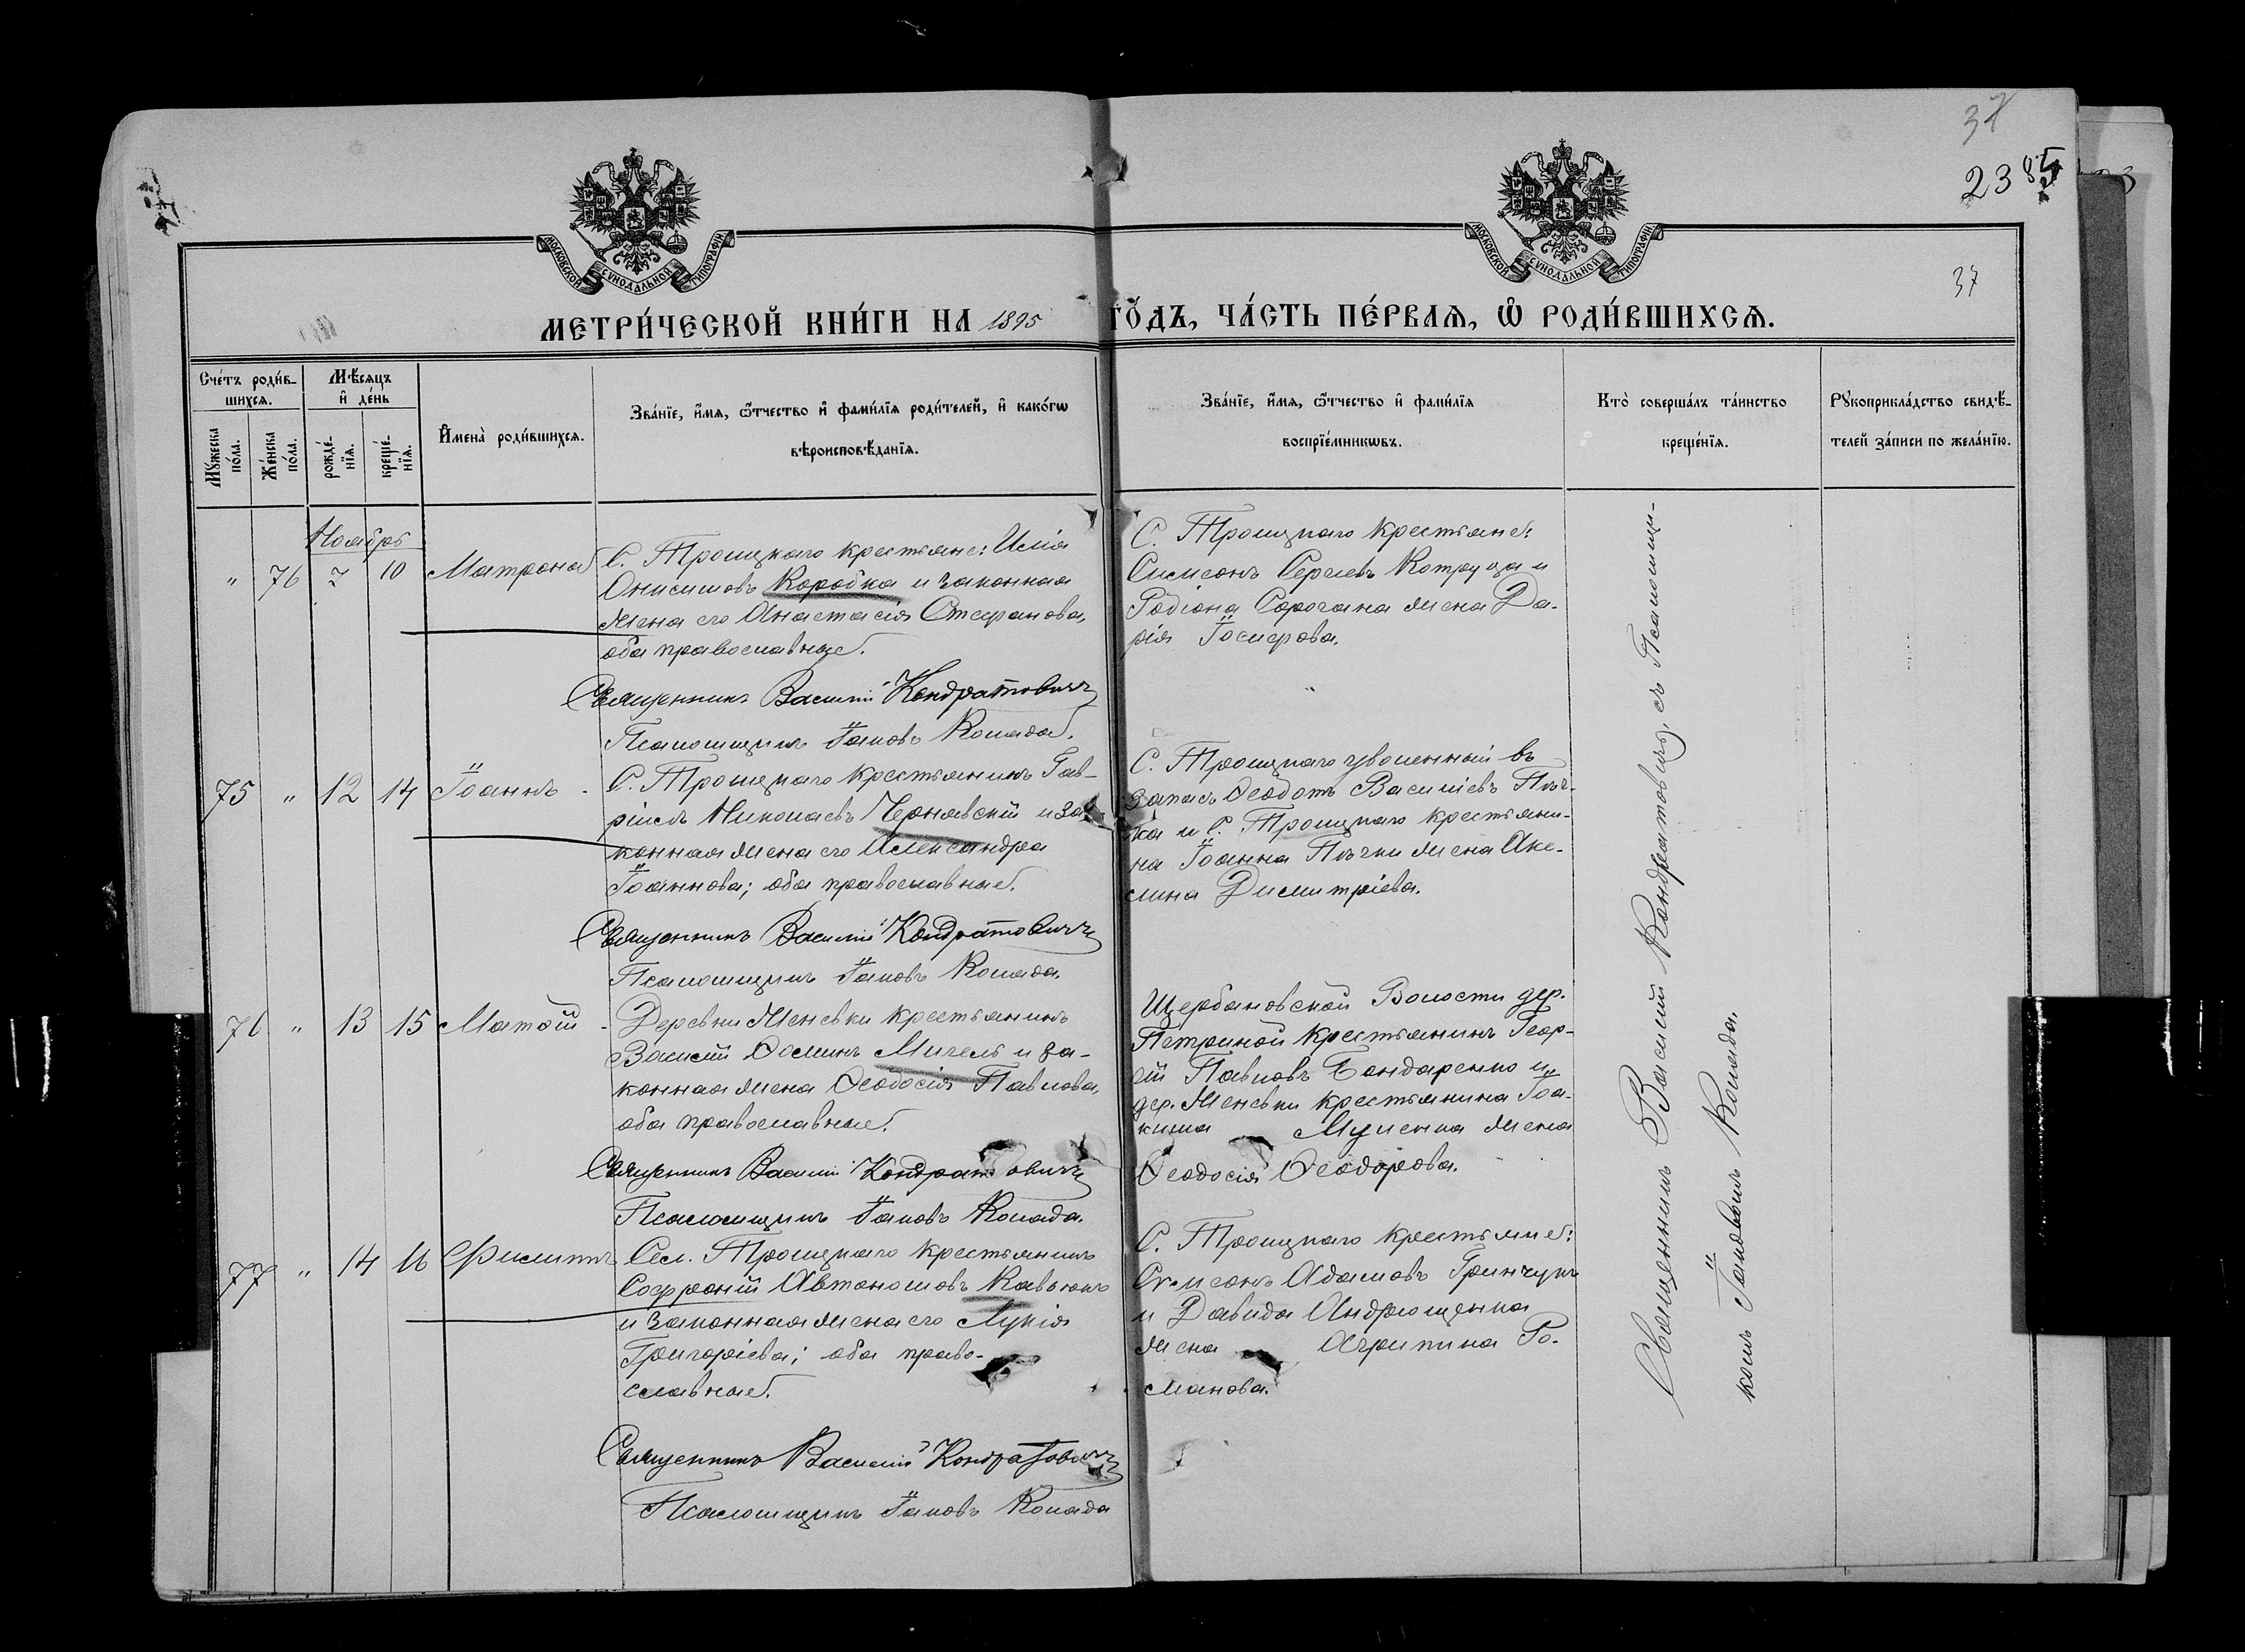 37
23 85
37
МОСКОВСКОЙ СѴНОДАЛЬНОЙ ТИПОГРАФІИ
МОСКОВСКОЙ СѴНОДАЛЬНОЙ ТИПОГРАФІИ
МЕТРИ́ЧЕСКОЙ КНИ́ГИ НА 1895 ГО́ДЪ, ЧА́СТЬ ПЕ́РВАѦ, Ѡ РОДИ́ВШИХСѦ.
Сче́тъ роди́в-
шихсѧ.
Мѣ́сѧцъ
и҆ де́нь
Мꙋ́жеска
по́ла.
Же́нска
по́ла.
рожде́-
нїѧ.
креще́-
нїѧ.
И҆мена̀ роди́вшихсѧ.
Зва́нїе, и҆́мѧ, ѻ҆́тчество и҆ фами́лїѧ роди́телей, и҆ како́гѡ
вѣроисповѣ́данїѧ.
Зва́нїе, и҆́мѧ, ѻ҆́тчество и҆ фами́лїѧ
воспрїе́мникѡвъ.
Кто̀ соверша́лъ та́инство
креще́нїѧ.
Рꙋкоприкла́дство свидѣ́-
телей за́писи по жела́нїю.
Ноябрь
" 76 7 10 Матрона
С. Троицкаго крестьяне: Илія
Онисимовъ Коробка и законная
жена его Анастасія Стефанова,
оба православные.
Священникъ Василій Кондратовичъ
Псаломщикъ Іаковъ Колада.
С. Троицкаго крестьяне:
Симеонъ Сергіевъ Котруца и
Родіона Сорочана жена Да-
рія Іосифова.
75 " 12 14 Іоаннъ
С. Троицкаго крестьянинъ Гав-
ріилъ Николаевъ Чернявскій и за-
конная жена его Александра
Іоаннова; оба православные.
Священникъ Василій Кондратовичъ
Псаломщикъ Іаковъ Колада.
С. Троицкаго уволенный въ
запасъ Ѳеодотъ Василіевъ
и С. Троицкаго крестьяни-
на Іоанна жена Аке-
лина Димитріева.
76 " 13 15 Матѳій
Деревни Женевки крестьянинъ
Василій Ѳоминъ и за-
конная жена Ѳеодосія Павлова,
оба православные.
Священникъ Василій Кондратовичъ
Псаломщикъ Іаковъ Колада.
Щербановской Волости дер.
Петриной крестьянинъ Геор-
гій Павловъ Бондаренко и
дер. Женевки крестьянина Іоа-
кима жена
Ѳеодосія Ѳеодорова.
77 " 14 16 Филиппъ
Сел. Троицкаго крестьянинъ
Софроній Автономовъ Кавьюкъ
и законная жена его Лукія
Григоріева; оба право-
славные.
Священникъ Василій Кондратовичъ
Псаломщикъ Іаковъ Колада
С. Троицкаго крестьяне:
Симеонъ Адамовъ Гринчукъ
и Давида Андрющенка
жена Агрипина Ро-
манова.
Священникъ Василій Кондратовичъ, съ Псаломщи-
комъ Іаковомъ Колада.